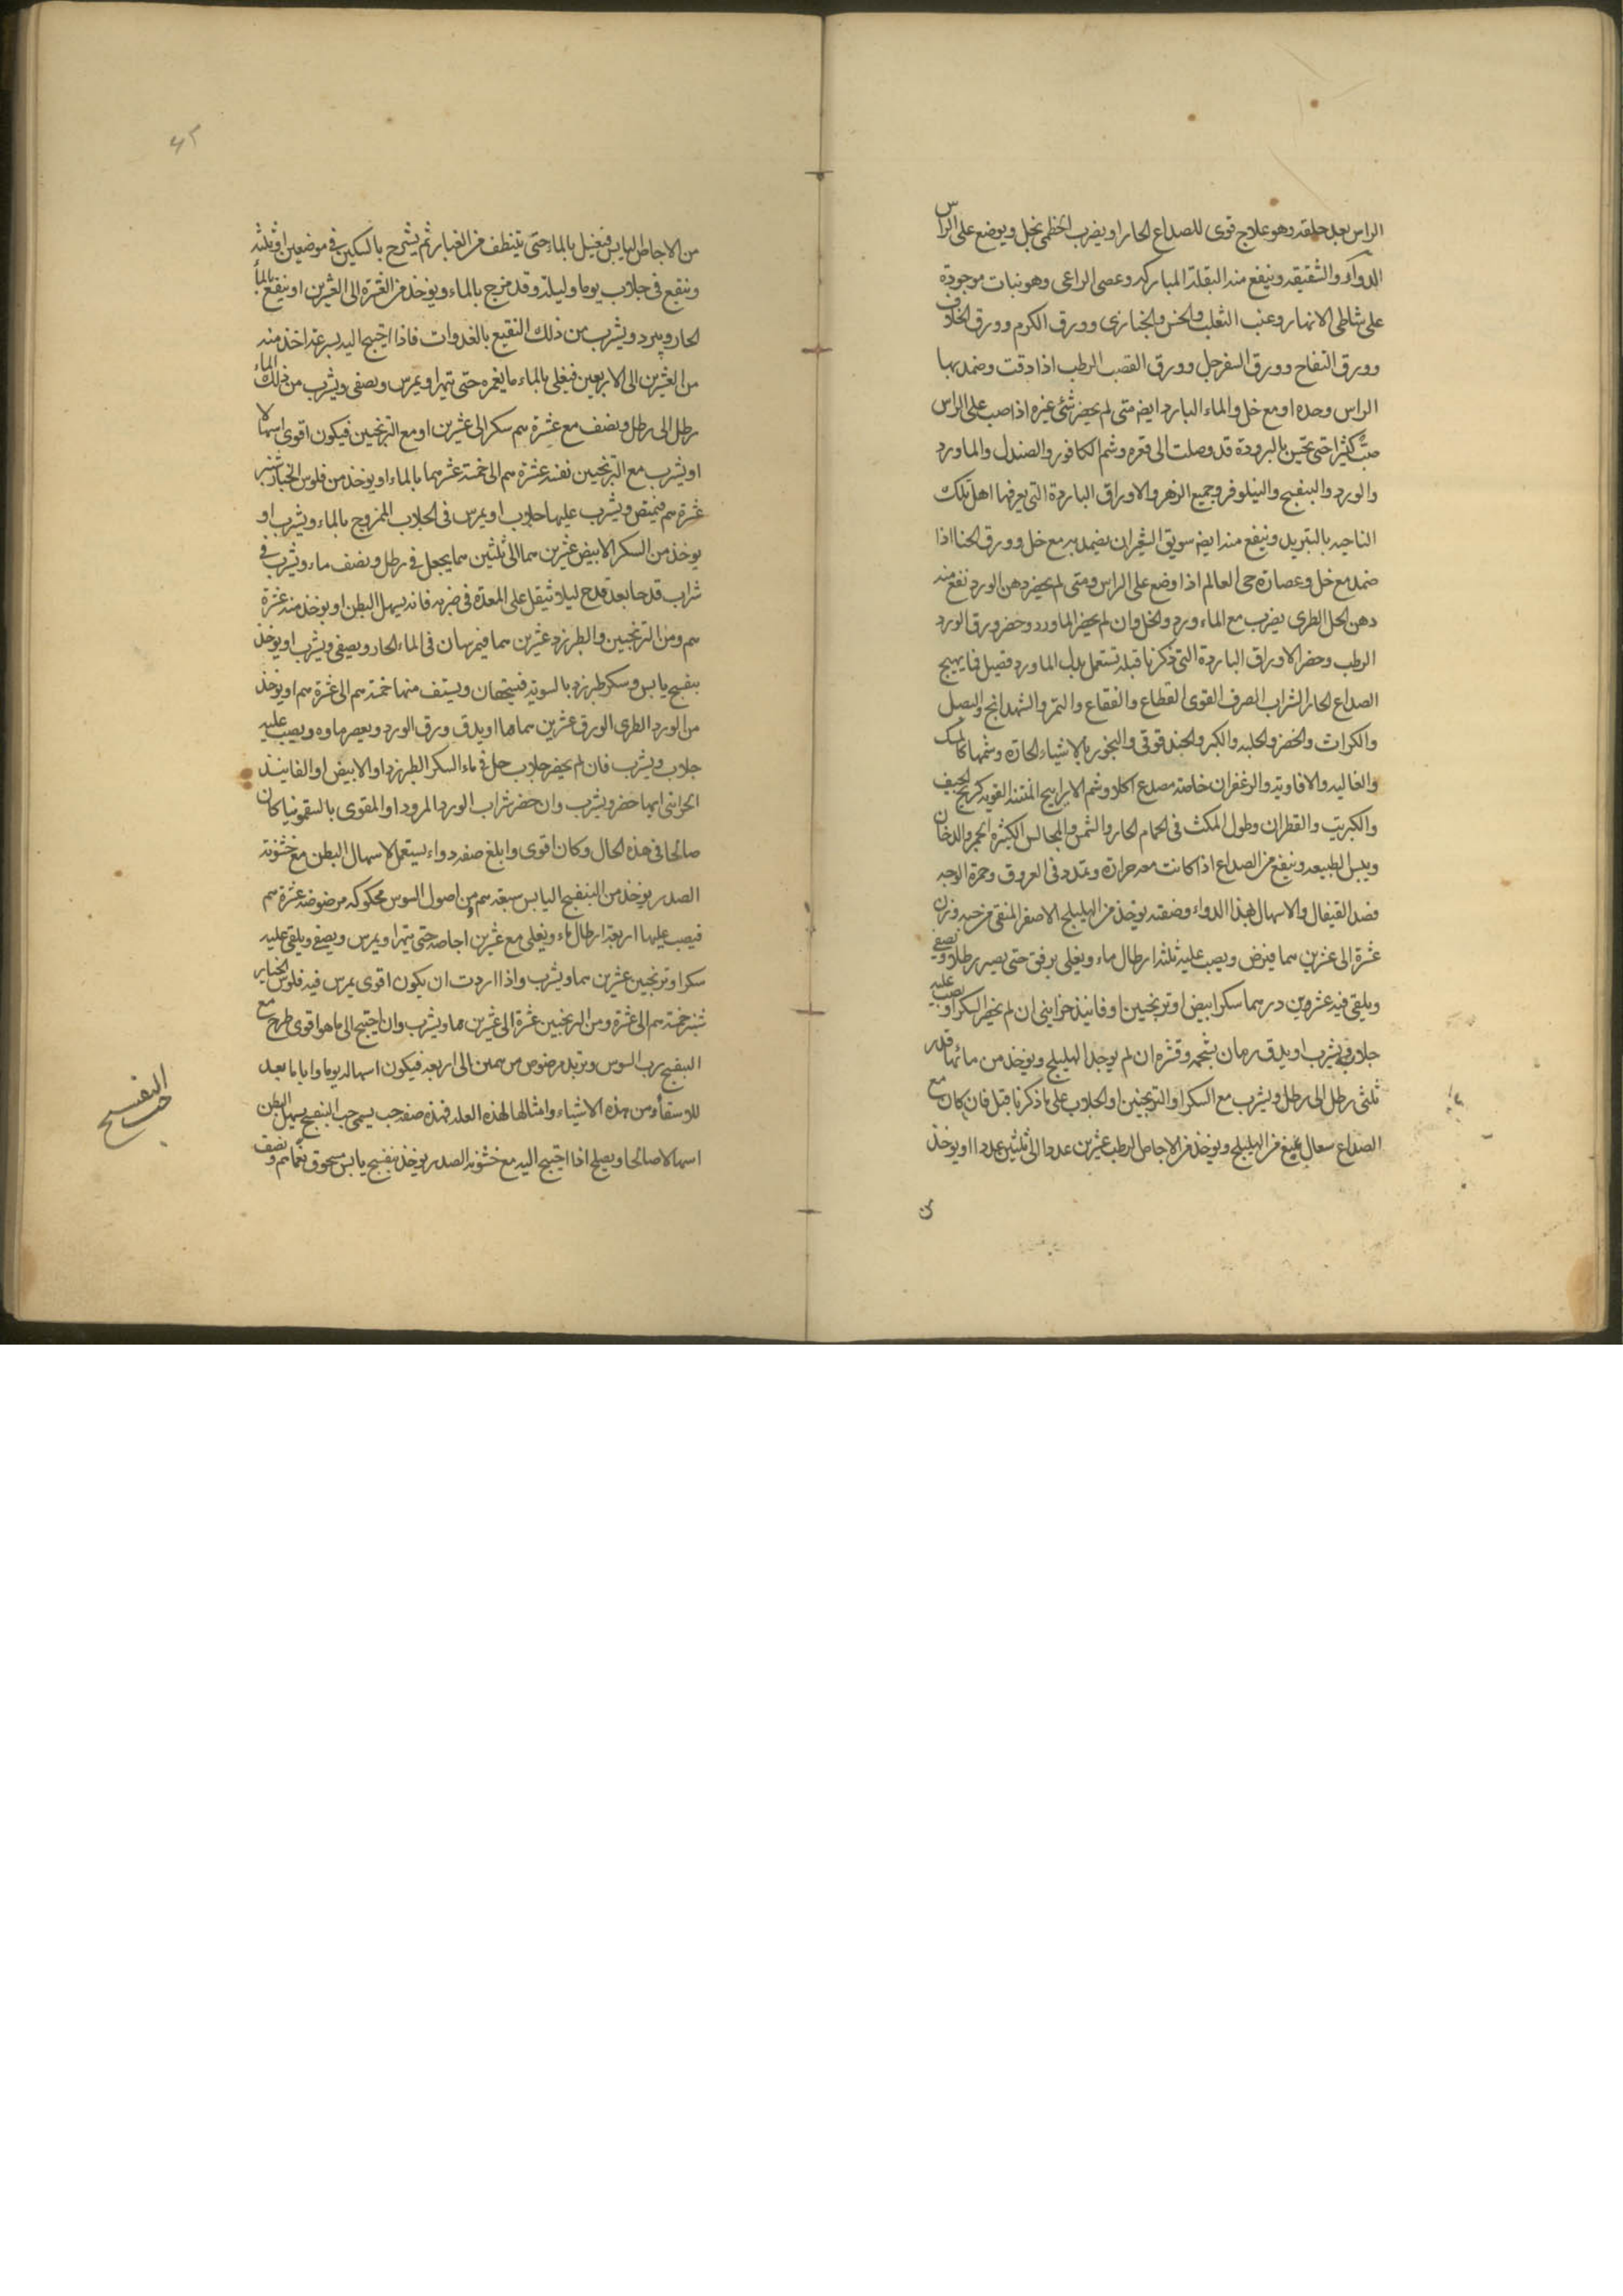 الراس بعد حلقه وهو علاج قوى للصداع الحار او يضرب الخطمى بخل ويوضع على الراس
الدواء والشقيقه وينفع منه البقلة المباركه وعصى الراعى وهو نبات موجودة
على شاطى الانهار وعنب الثعلب والخس والخبازى وورق الكرم وورق الخلاف
وورق التفاح وورق السفرجل وورق القصب الرطب اذا دقت وضمد بها
الراس وحده او مع خل والماء البارد ايضه متى لم يحضر شئ غيره اذا صب على الراس
صبّ كثيرا حتى تحس بالبرودة قد وصلت الى قعره وشم الكافور والصندل والماورد
والورد والبنفسج والنيلوفر وجميع الزهر والاوراق الباردة التى يعرفها اهل تلك
الناحيه بالتبريد وينفع منه ايضه سويق الشعير ان يضمد به مع خل وورق الحنا اذا
ضمد مع خل وعصارة حى العالم اذا وضع على الراس ومتى لم يحضر دهن الورد نفع منه
دهن الحل الطرى يضرب مع الماء ورد والخل وان لم يحضر الماورد وحضر ورق الورد
الرطب وحضر الاوراق الباردة التى ذكرنا قبله تستعمل بدل الماورد فصل فيما يهيج
الصداع الحار الشراب الصرف القوى القطاع والفقاع والتمر والشهدانج والبصل
والكراث والخضر والحلبه والكبر والحندقوقى والبخور بالاشياء الحارة وشمها كالمسك
والغاليه والافاويه والزعفران خاصته مصدع اكلا وشم الاراييح المنتنه القويه كريح الجيف
والكبريت والقطران وطول المكث فى الحمام الحار والشمس والمجالس الكثيرة الجمر والدخان
ويبس الطبيعه وينفع من الصداع اذا كانت معه حرارة وتمدد فى العروق وحمرة الوجه
فصد القيفال والاسهال بهذا الدواء وصفته يوخذ من الهليلج الاصفر المنقى من حبه وزن
عشرة الى عشرين سما فيرض ويصب عليه ثلثه ارطال ماء ويغلى برفق حتى يصير رطلا ويصفى
ويلقى فيه عشرين درهما سكر ابيض او ترنجبين او فانيذ خزاينى ان لم يحضر السكر او يصب عليه
جلاب ويشرب او يدق رمان بشحمه وقشره ان لم يوجد الهليلج ويوخذ من مائهما قدر
ثلثى رطل الى رطل ويشرب مع السكر او الترنجبين او الجلاب على ما ذكرنا قبل فان كان مع
الصداع سعال يمنع من الهليلج ويوخذ من الاجاص الرطب عشرين عددا الى ثلثين عددا او يوخذ
من الاجاص اليابس فيغسل بالماء حتى يتنظف من الغبار ثم يشرح بالسكين فى موضعين او ثلثه
وينقع فى جلاب يوما وليلة وقد مزج بالماء ويوخذ من العشرة الى العشرين او ينقع بالماء
الحار ويبرد ويشرب من ذلك النقيع بالغدوات فاذا احتيج اليه بسرعة اخذ منه
من العشرين الى الاربعين فيغلى بالماء ما يغمره حتى يتهرا ويمرس ويصفى ويشرب من ذلك الماء
رطل الى رطل ونصف مع عشرة سم سكر الى عشرين او مع الترنجبين فيكون اقوى اسهالا
او يشرب مع الترنجبين نفسه عشرة سم الى خمسة عشر هما بالماء او يوخذ من فلوس الخيار شنبر
عشرة سم فيمتص ويشرب عليها جلاب او يمرس فى الجلاب الممزوج بالماء ويشرب او
يوخذ من السكر الابيض عشرين سما الى ثلثين سما يجعل فى رطل ونصف ماء ويشرب فى
شراب قدحا بعد قدح ليلا تثقل على المعدة فى ضربه فانه يسهل البطن او يوخذ منه عشرة
سم ومن الترنجبين والطبرزد عشرين سما فيمرسان فى الماء الحار ويصفى ويشرب او يوخذ
بنفسج يابس وسكر طبرزد بالسويه فيسحقان ويستف منها خمسة سم الى عشرة سم او يوخذ
من الورد الطرى الورق عشرين سماها او يدق ورق الورد ويعصر ماوه ويصب عليه
جلاب ويشرب فان لم يحضر جلاب حل فى ماء السكر الطبرزد او الابيض او الفانيذ
الخزاينى ايها حضر ويشرب وان حضر شراب الورد المرود او المقوى بالسقمونيا كان
صالحا فى هذه الحال وكان اقوى وابلغ صفه دواء يستعمل لاسهال البطن مع خشونة
الصدر يوخذ من البنفسج اليابس سبعة سم ومن اصول السوس محكوكه مرضوضه عشرة سم
فيصب عليها اربعة ارطال ماء ويغلى مع عشرين اجاصه حتى يتهرا ويمرس ويصفى ويلقى عليه
سكر او ترنجبين عشرين سما ويشرب واذا اردت ان يكون اقوى يمرس فيه فلوس الخيار
شنبر خمسة سم الى عشرة ومن الترنجبين عشرة الى عشرين سما ويشرب وان احتيج الى ما هو اقوى طرح مع
البنفسج رب السوس وتربد مرضوض من سمين الى اربعه فيكون اسهاله يوما واياما بعد
للاستقاء من هذه الاشياء وامثالها لهذه العله فهذه صفه حب يسمى حب البنفسج يسهل البطن
اسهالا صالحا ويصلح اذا احتيج اليه مع خشونه الصدر يوخذ بنفسج يابس مسحوق نعما سم ونصف
حب البنفسج